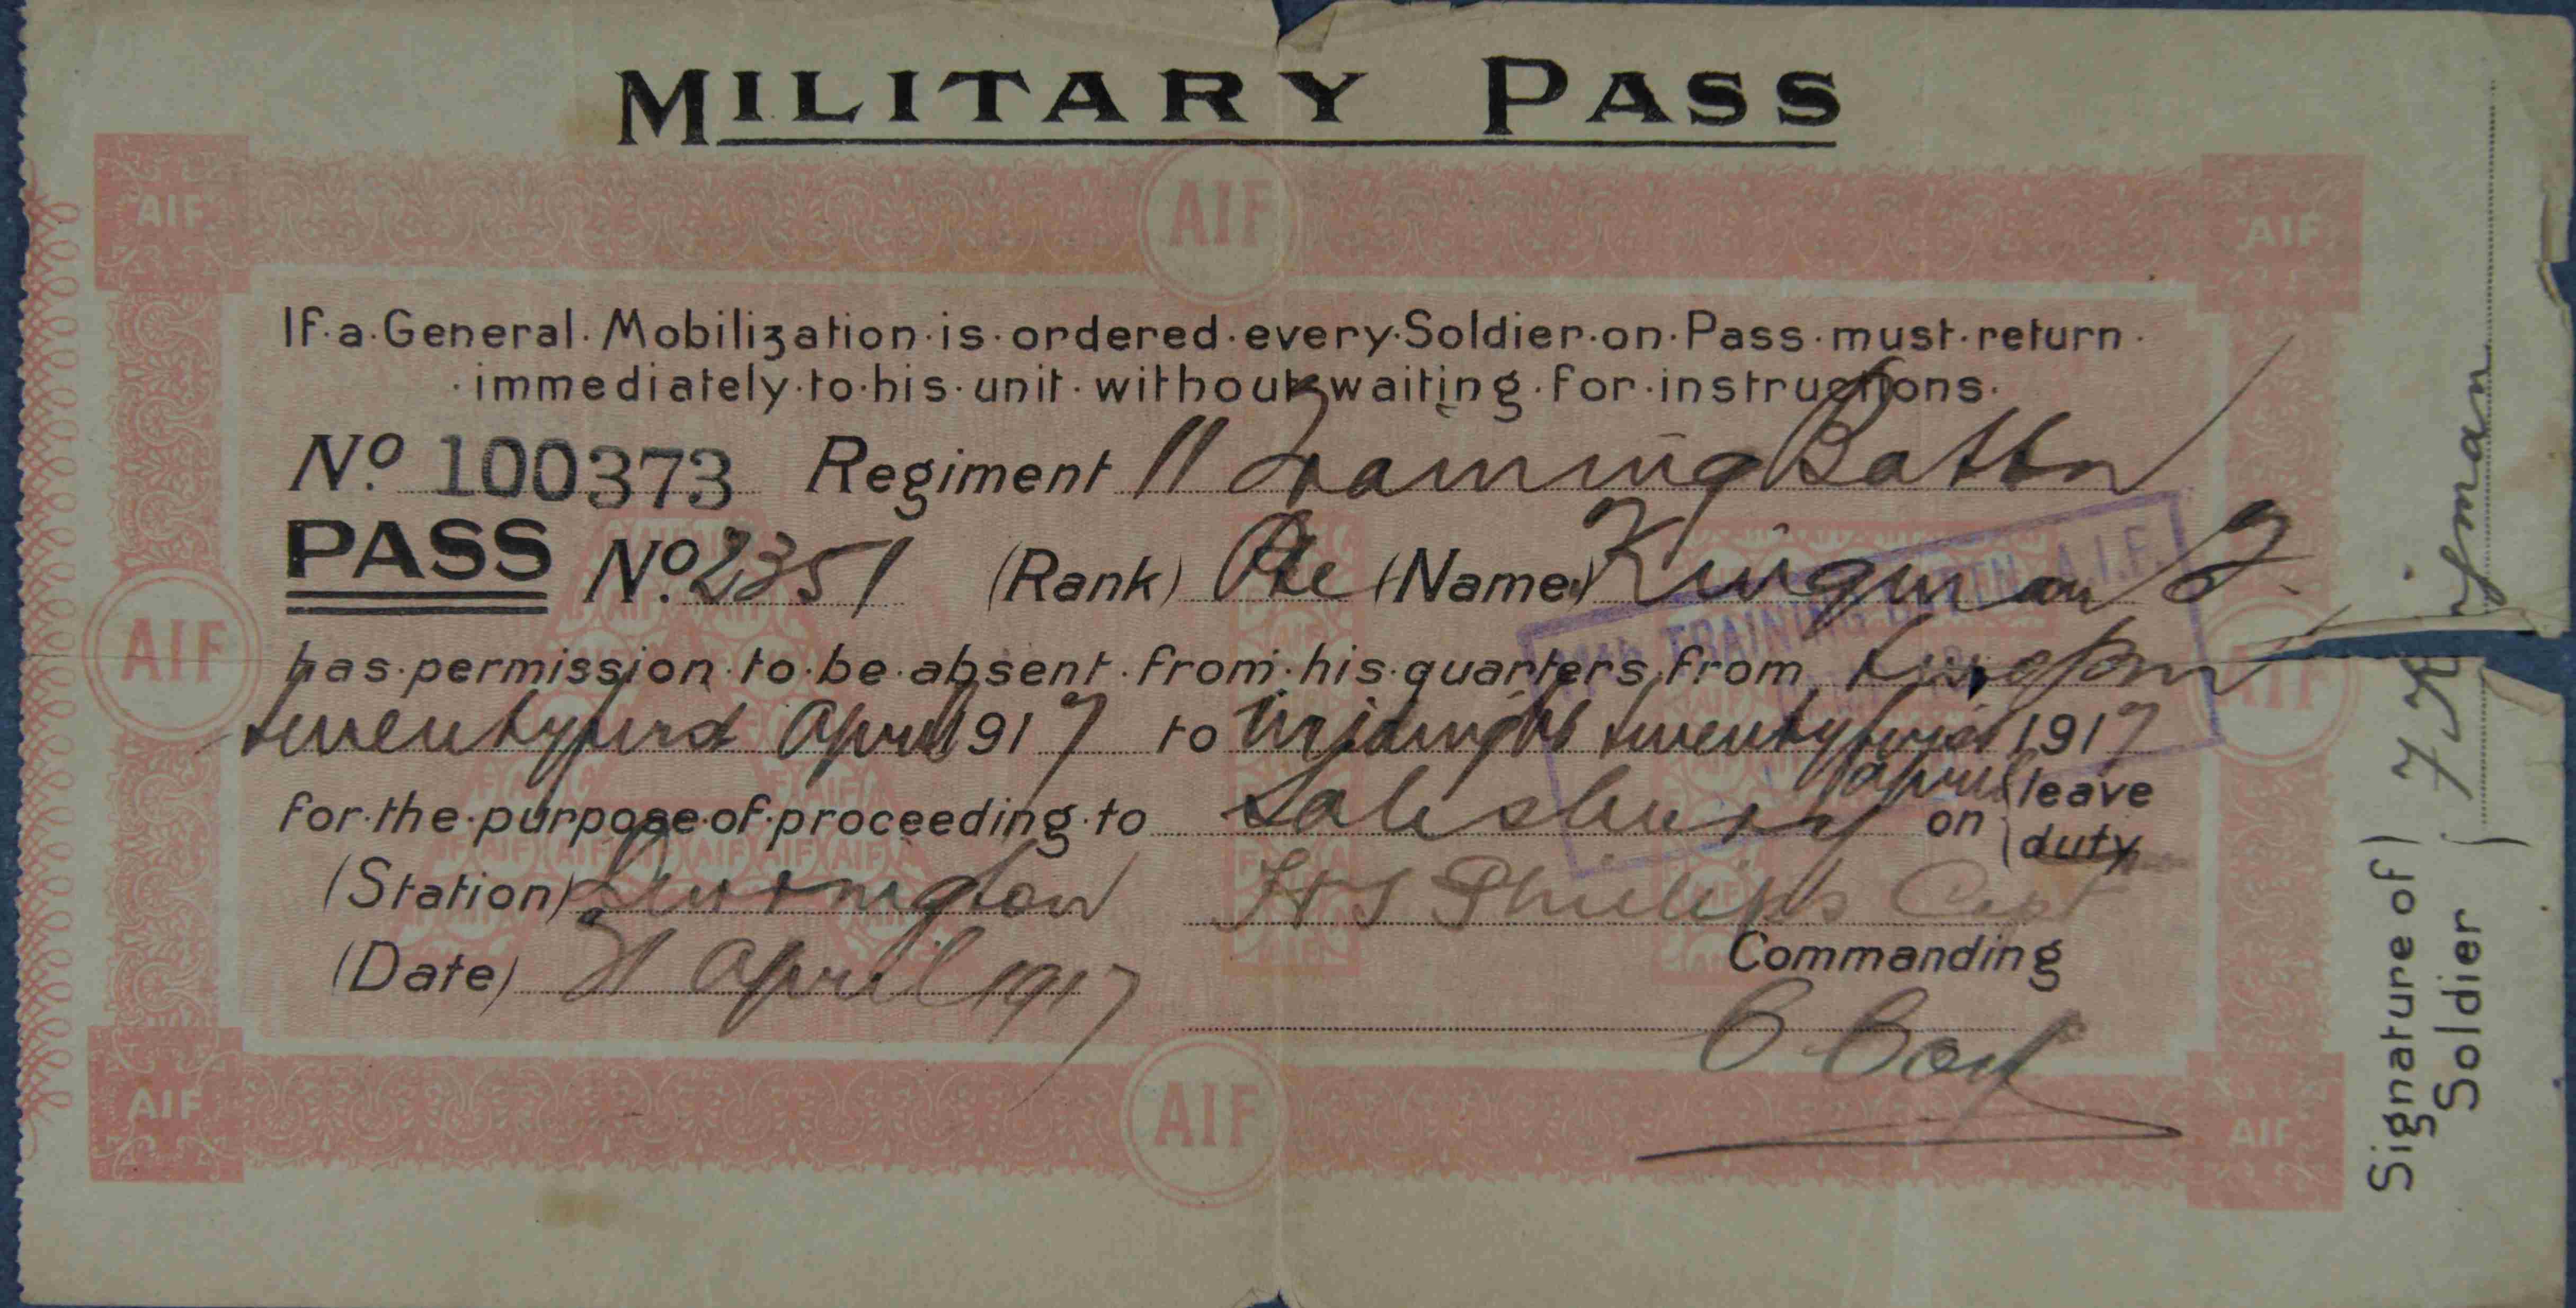 MILITARY PASS
AIF AIF AIF
If·a·General·Mobilization·is·ordered·every·Soldier·on·Pass·must·return·
·immediately·to·his·unit·without·waiting·for·instructions.
No. 100373 Regiment 11 Training Battn
PASS No. 2351 (Rank) Pte (Name) Kingman F
11th TRAINING BATTN. A.I.F.
has·permission·to·be·absent·from·his·quarters·from
AIF AIF
twentyfirst April 1917 to Midnight twentyfirst 1917
April
for·the·purpose·of·proceeding·to Salisbury on leave
duty
(Station) Durrington H S Phillips Capt
(Date) 21 April 1917 Commanding
AIF AIF AIF
Signature of Soldier F Kingman